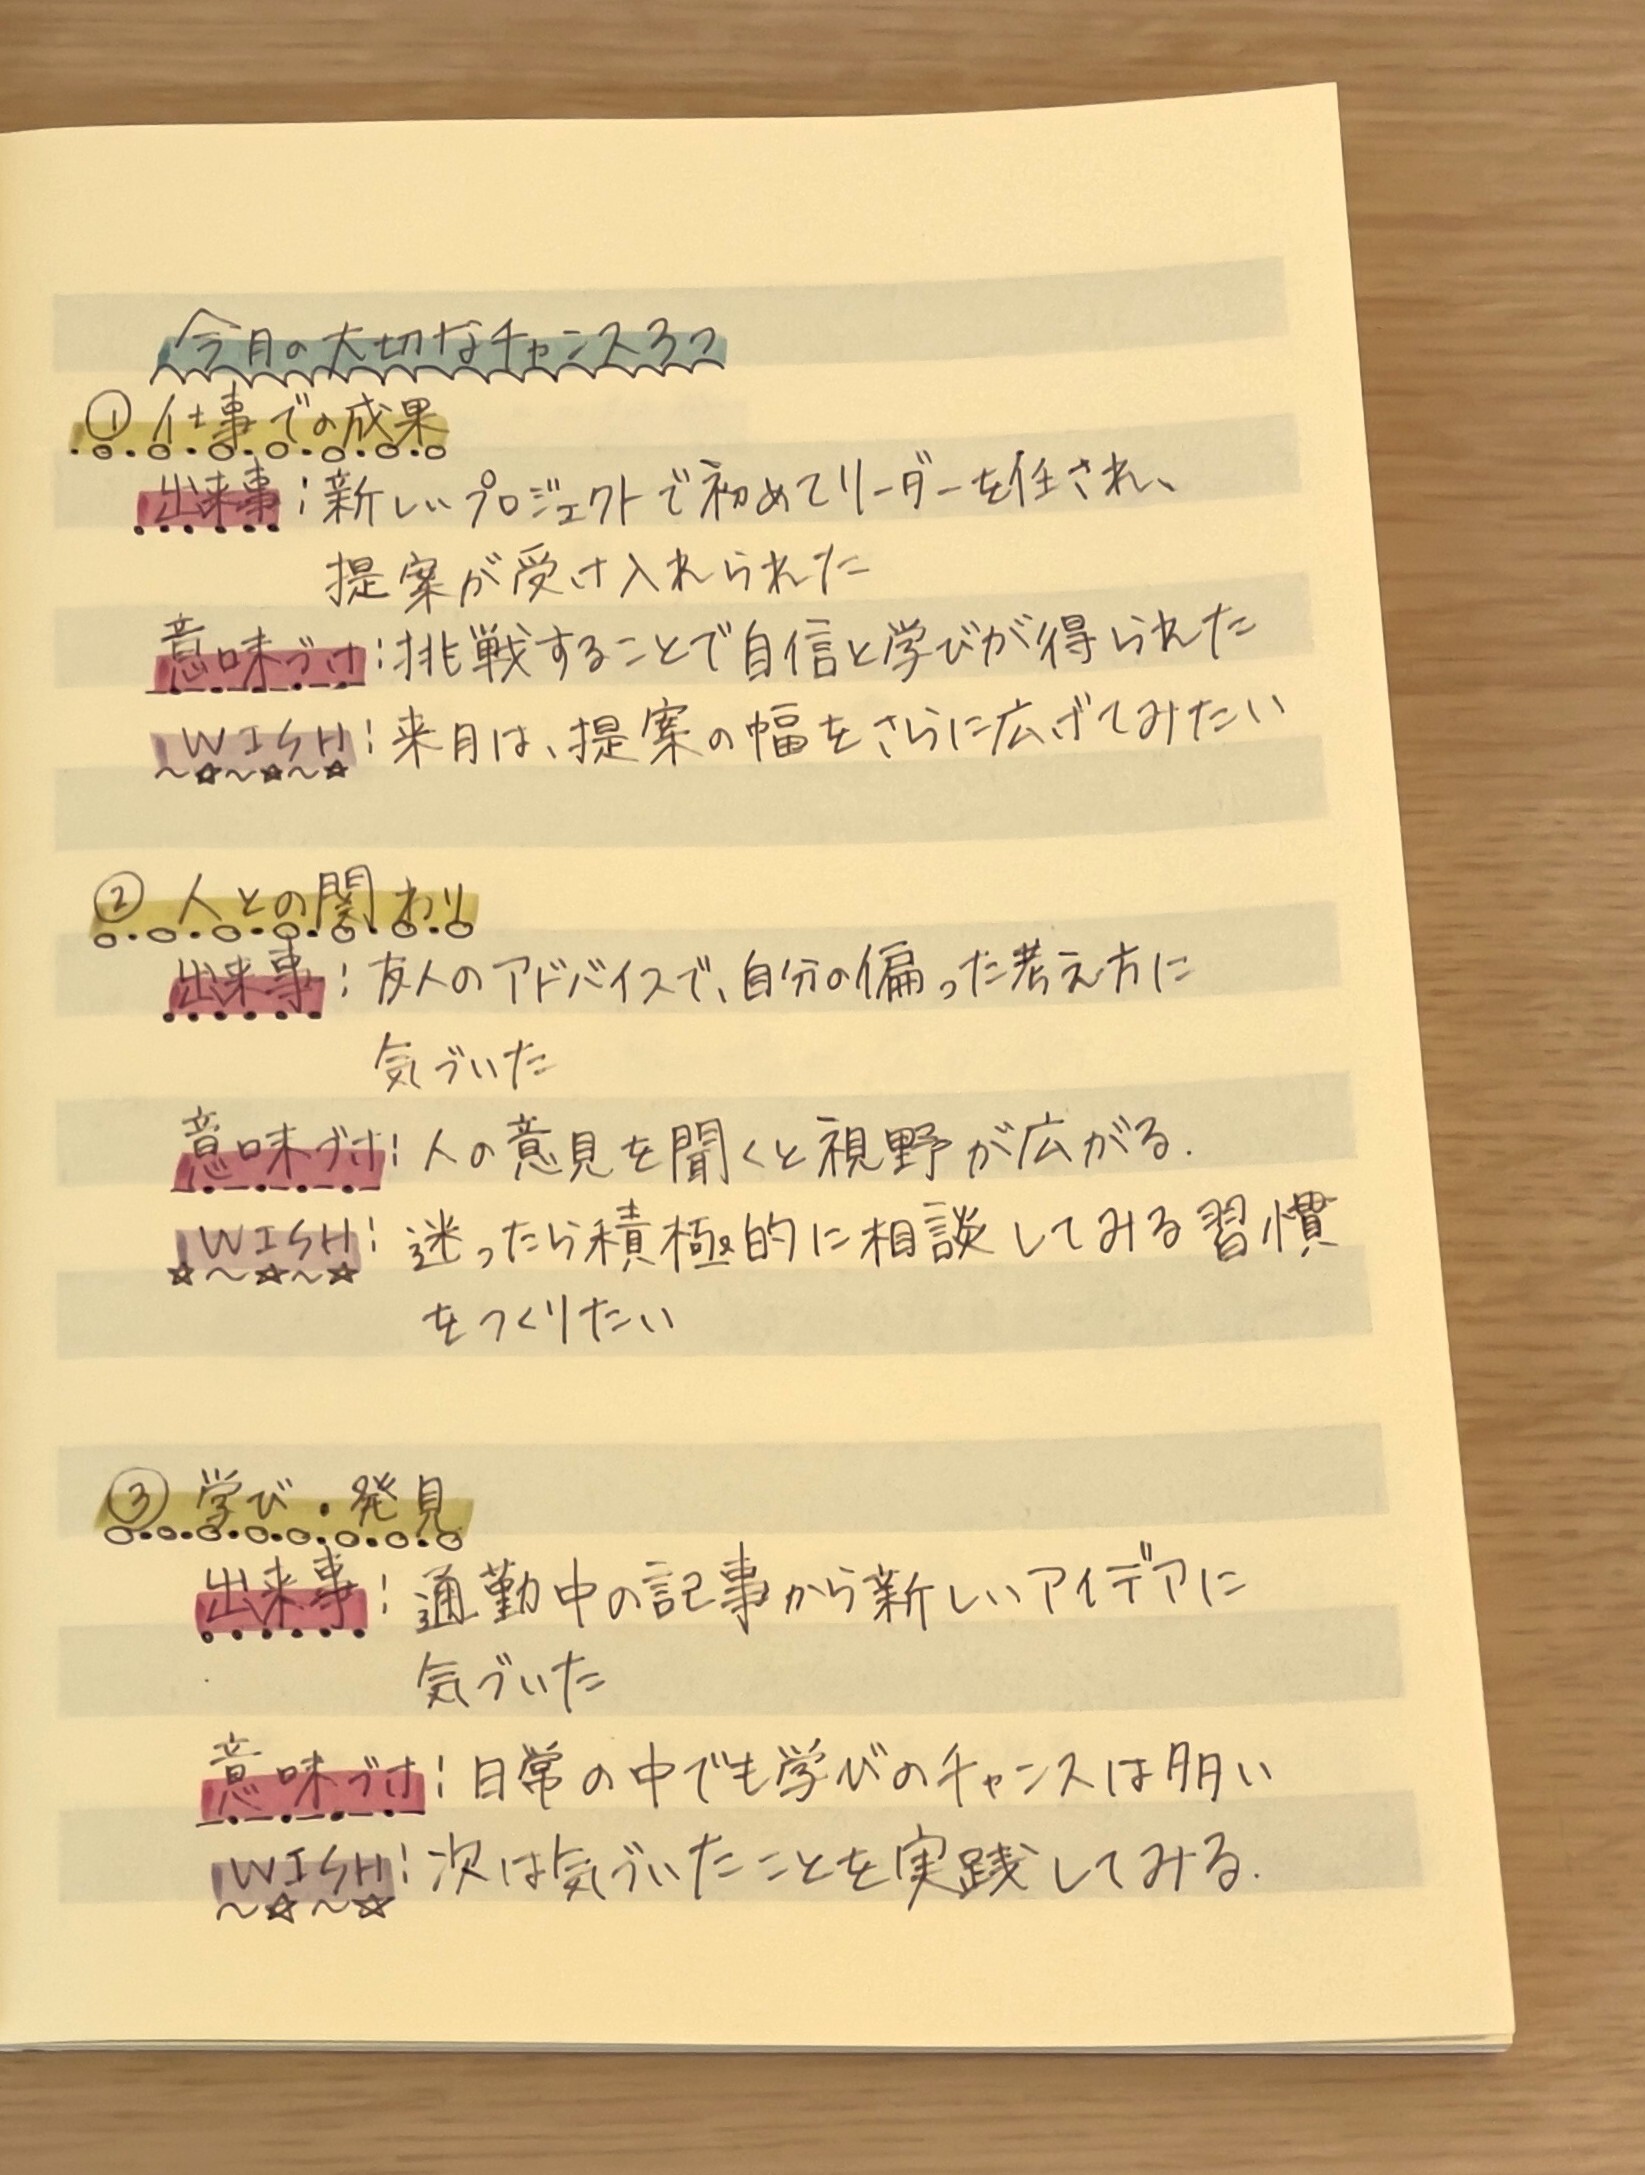 今月の大切なチャンス3つ
① 仕事での成果
出来事：新しいプロジェクトで初めてリーダーを任され、
提案が受け入れられた
意味づけ：挑戦することで自信と学びが得られた
WISH：来月は、提案の幅をさらに広げてみたい
② 人との関わり
出来事：友人のアドバイスで、自分の偏った考え方に
気づいた
意味づけ：人の意見を聞くと視野が広がる.
WISH：迷ったら積極的に相談してみる習慣
をつくりたい
③ 学び・発見
出来事：通勤中の記事から新しいアイデアに
気づいた
意味づけ：日常の中でも学びのチャンスは多い
WISH：次は気づいたことを実践してみる.